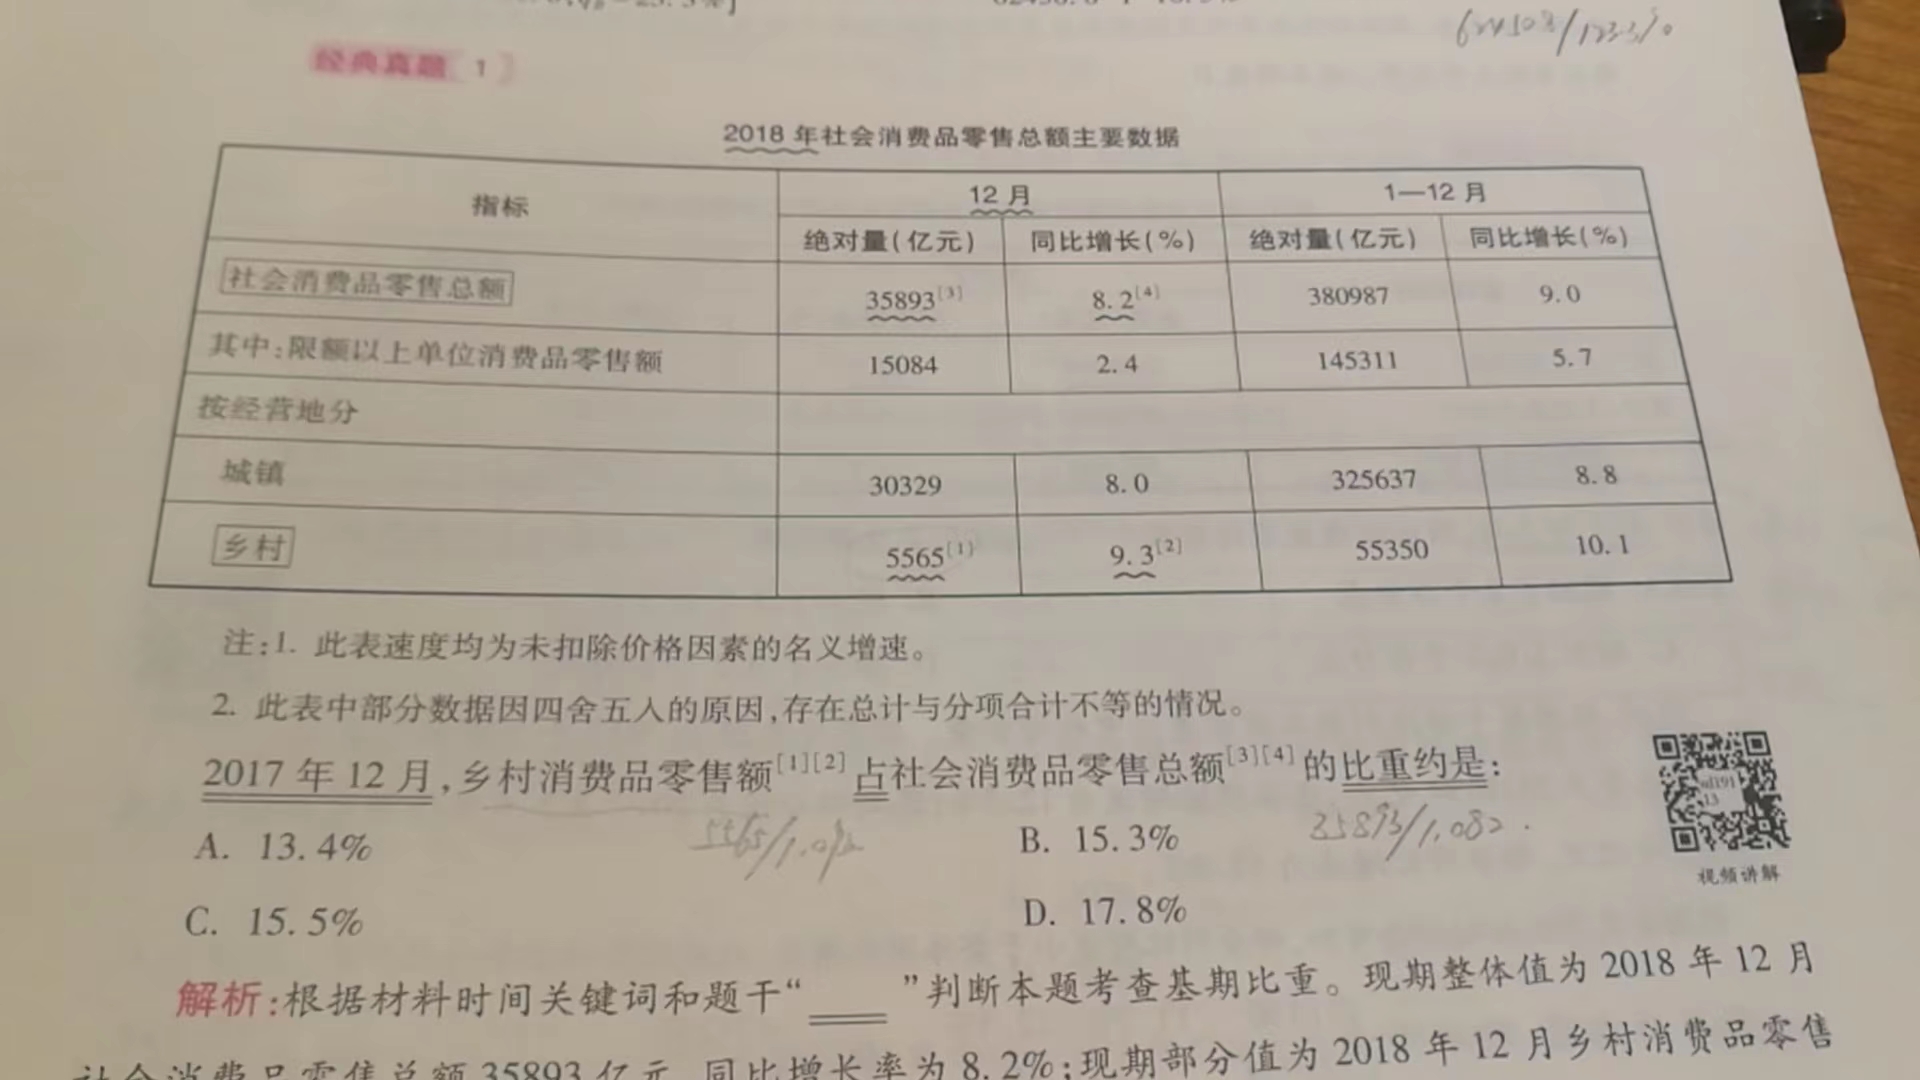 62450.8/123.3%
经典真题 1
2018年社会消费品零售总额主要数据
指标 12月 1—12月
绝对量(亿元) 同比增长(%) 绝对量(亿元) 同比增长(%)
社会消费品零售总额 35893[3] 8.2[4] 380987 9.0
其中:限额以上单位消费品零售额 15084 2.4 145311 5.7
按经营地分
城镇 30329 8.0 325637 8.8
乡村 5565[1] 9.3[2] 55350 10.1
注:1. 此表速度均为未扣除价格因素的名义增速。
2. 此表中部分数据因四舍五入的原因,存在总计与分项合计不等的情况。
2017年12月,乡村消费品零售额[1][2]占社会消费品零售总额[3][4]的比重约是:
A. 13.4% B. 15.3%
35893/1.082
C. 15.5% D. 17.8%
视频讲解
解析:根据材料时间关键词和题干“ ”判断本题考查基期比重。现期整体值为2018年12月
社会消费品零售总额35893亿元,同比增长率为8.2%;现期部分值为2018年12月乡村消费品零售